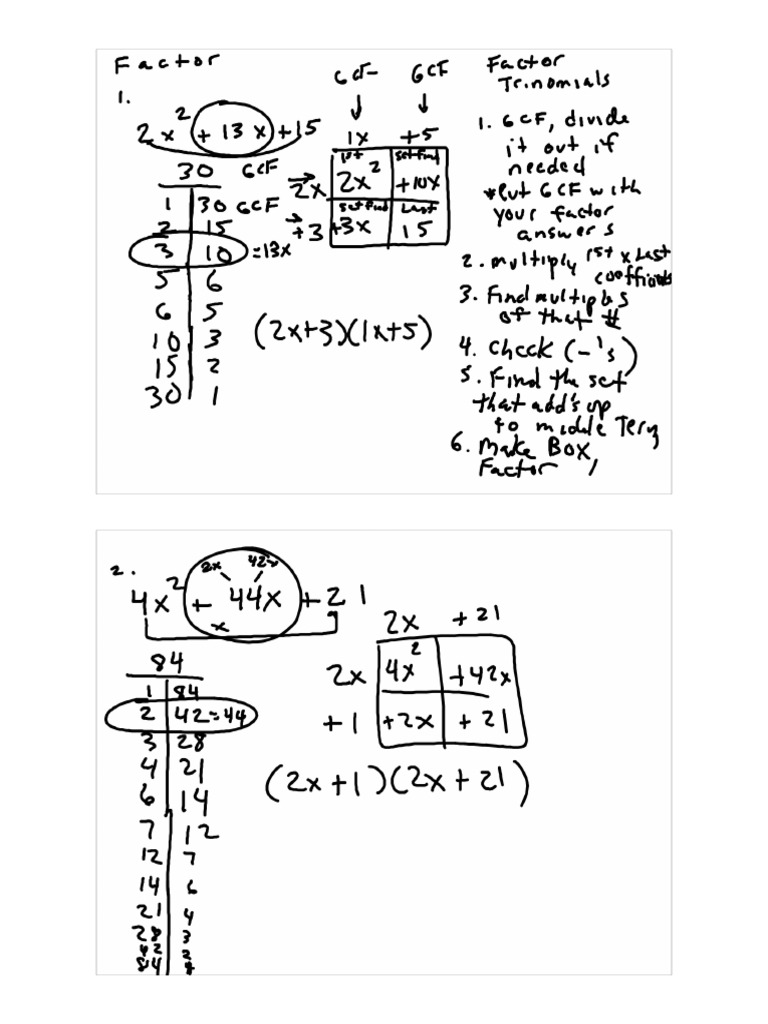 Factor
1.
2x² + 13x + 15
30 GCF
1 30 GCF
2 15
3 10 = 13x
5 6
6 5
10 3
15 2
30 1
GCF GCF
1x +5
1st set find
2x 2x² +10x
set find Last
+3 +3x 15
(2x+3)(1x+5)
Factor
Trinomials
1. GCF, divide
it out if
needed
*Put GCF with
your factor
answers
2. multiply 1st x Last
3. Find multiples
of that #
4. Check (-'s)
5. Find the set
that add's up
to middle Term
6. Make Box,
Factor
2.
2x 42x
4x² + 44x + 21
x
84
1 84
2 42 = 44
3 28
4 21
6 14
7 12
12 7
14 6
21 4
28 3
42 2
84
2x +21
2x 4x² +42x
+1 +2x +21
(2x+1)(2x+21)